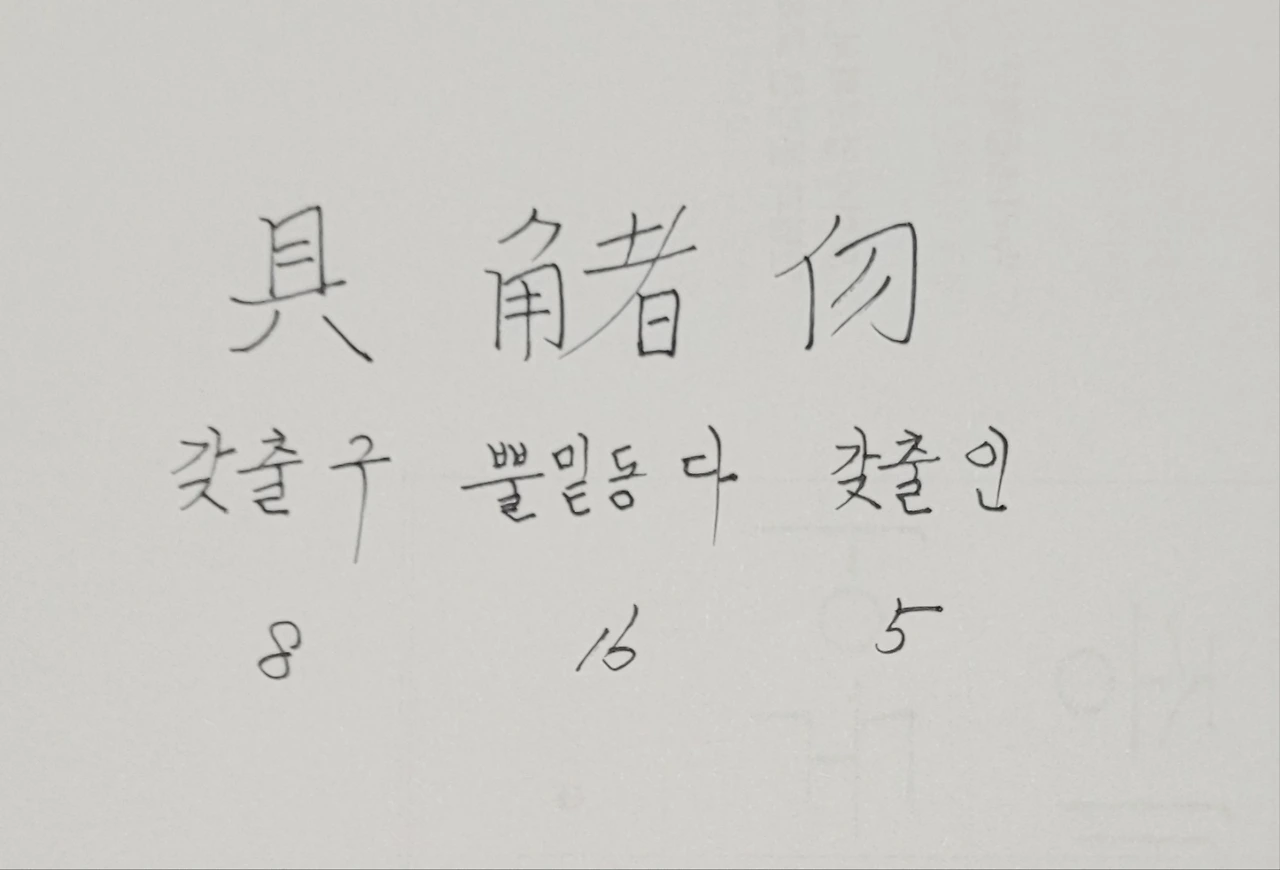 具 觰 仞
갖출 구 뿔밑동 다 갖출 인
8 16 5